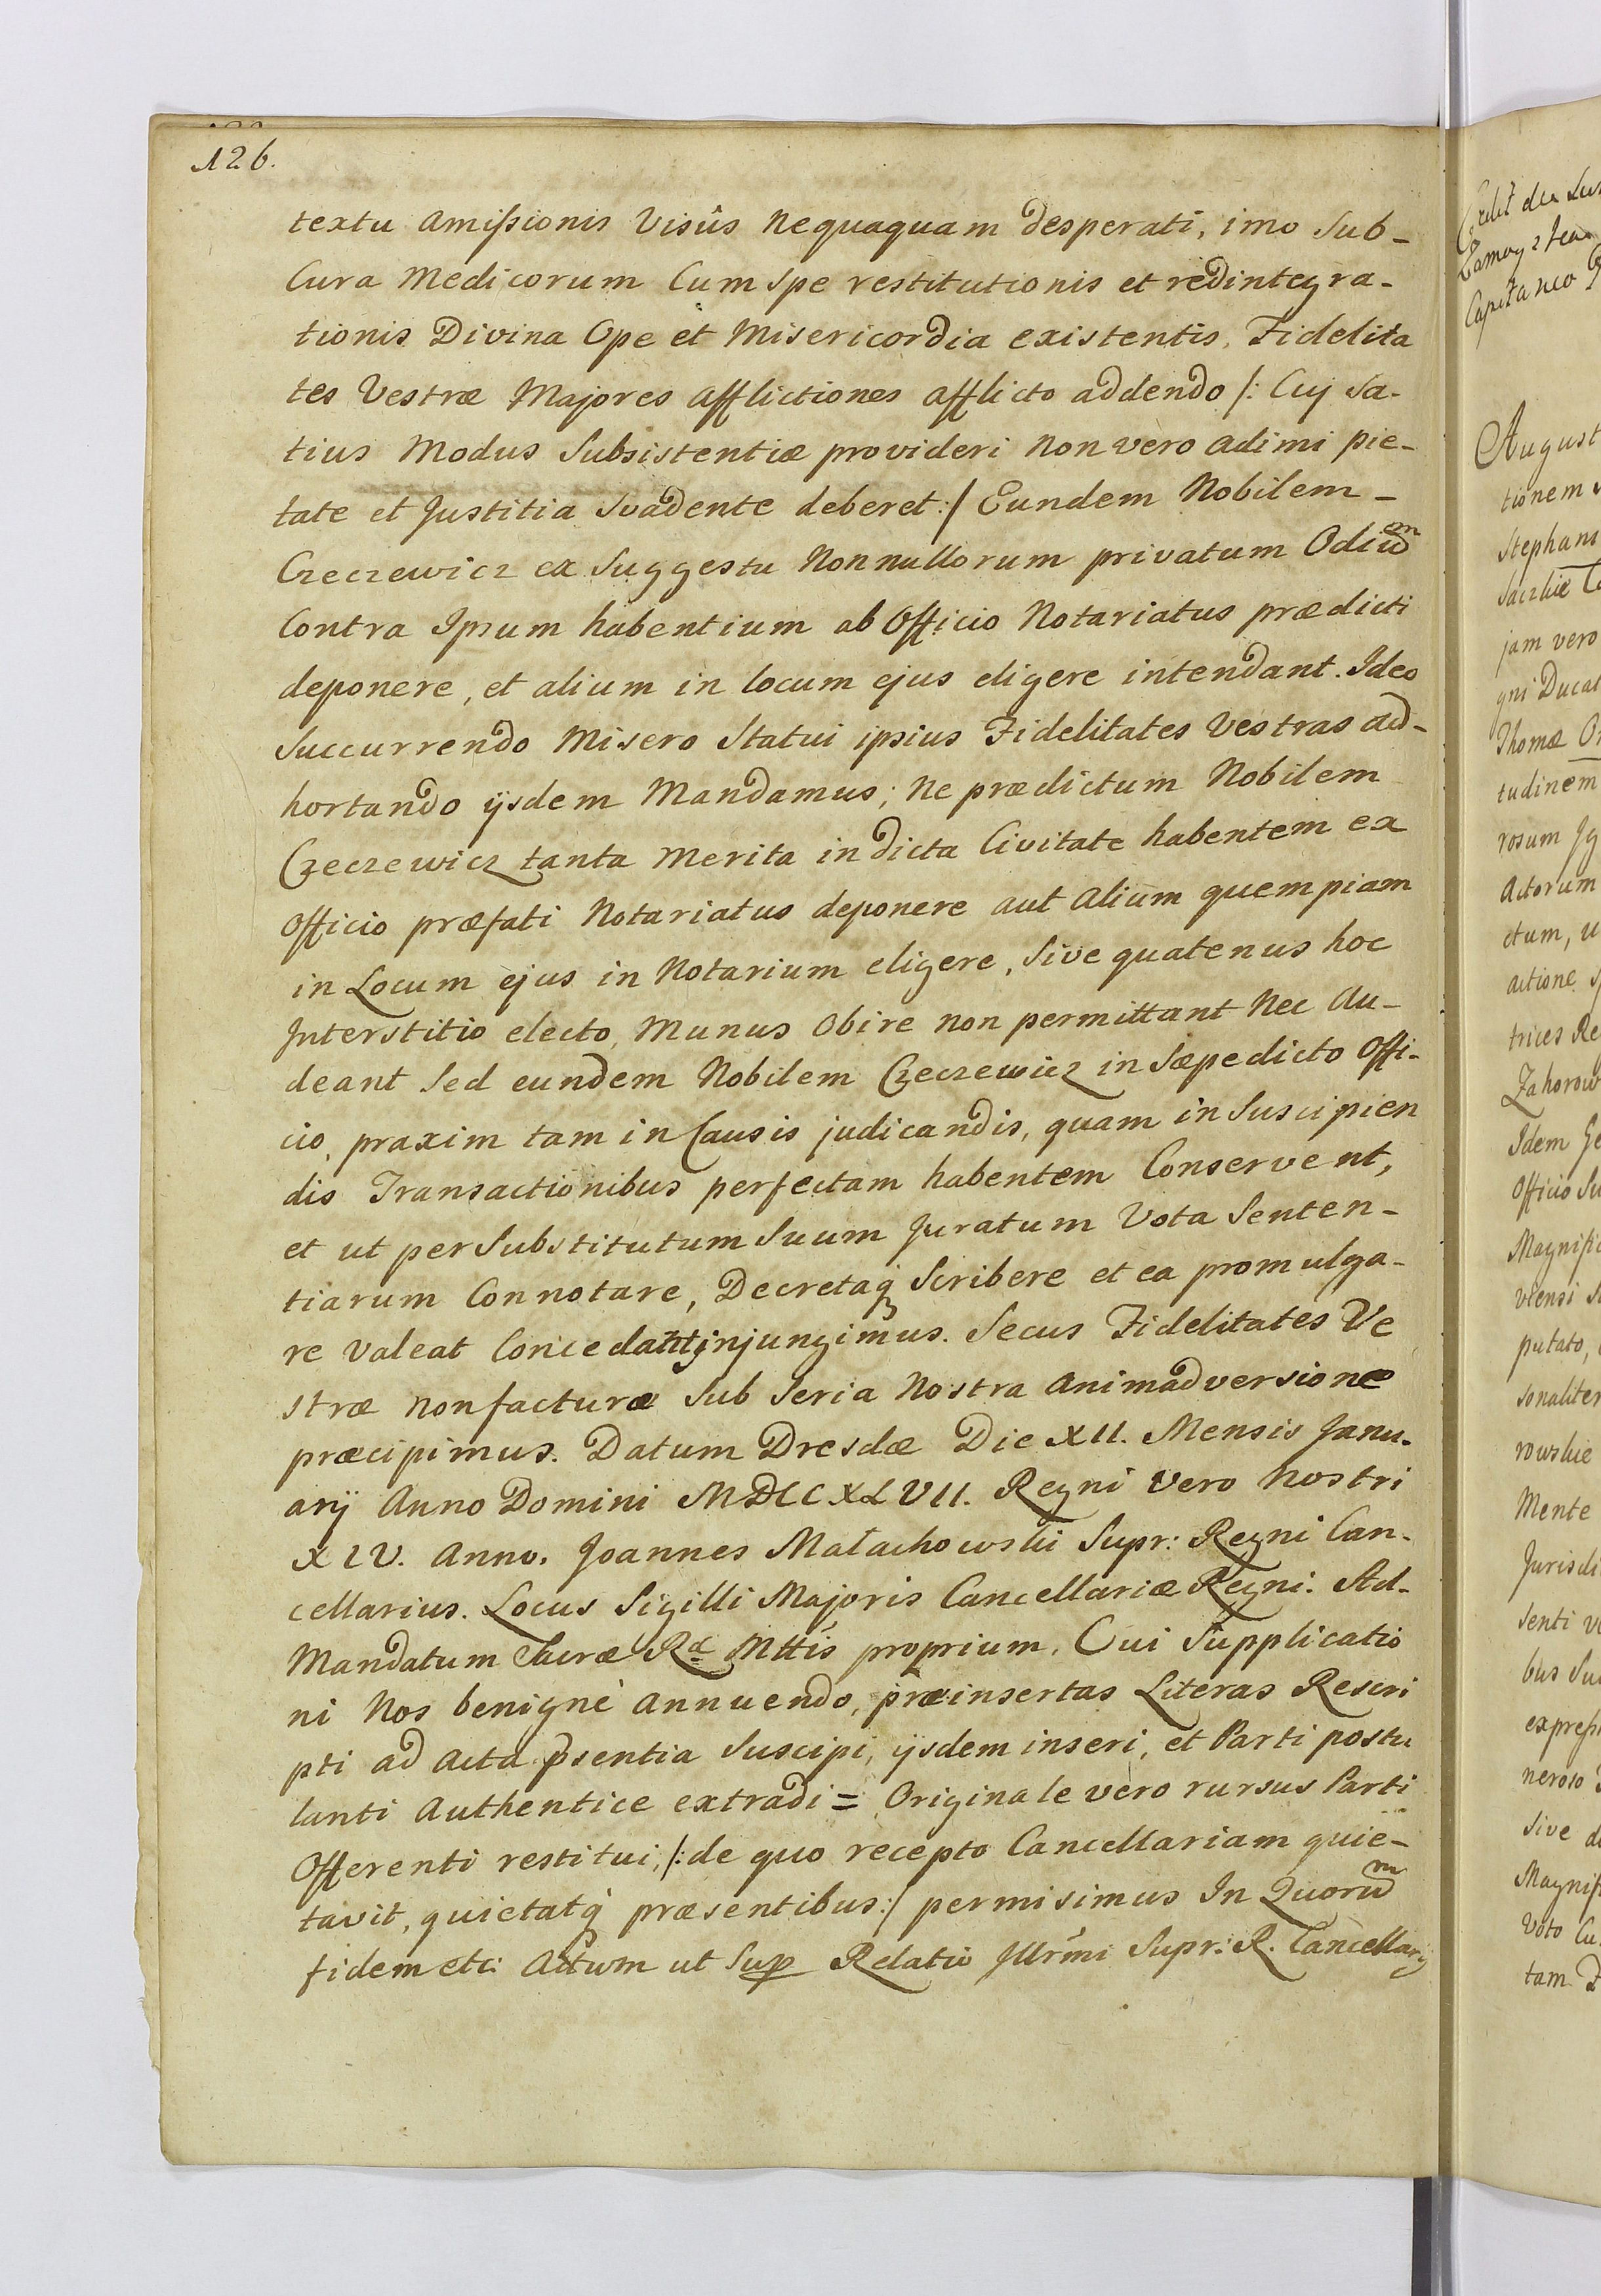 126.
textu amissionis Visûs nequaquam desperati, imo Sub-
Cura Medicorum Cum Spe restitutionis et redintegra-
tionis Divina Ope et Misericordia existentis, Fidelita
tes Vestræ Majores afflictiones afflicto addendo /: Cuj Sa-
tius Modus Subsistentiæ provideri non vero adimi pie-
tate et Justitia Svadente deberet :/ Eundem Nobilem -
Czeczewicz ex Suggestu Nonnullorum privatum Odium
Contra Ipsum habentium ab Officio Notariatus prædicti
deponere, et alium in locum ejus eligere intendant. Ideo
Succurrendo Misero Statui ipsius Fidelitates Vestras ad-
hortando ijsdem Mandamus; Ne prædictum Nobilem
Czeczewicz tanta Merita in dicta Civitate habentem ex
Officio præfati Notariatus deponere aut alium quempiam
in Locum ejus in Notarium eligere, Sive quatenus hoc
Interstitio electo, Munus Obire non permittant Nec Au-
deant Sed eundem Nobilem Czeczewicz in Sæpedicto Offi-
cio, praxim tam in Causis judicandis, quam in Suscipien
dis Transactionibus perfectam habentem Conservent,
et ut per Substitutum Suum Juratum Vota Senten-
tiarum Connotare, Decretaq Scribere et ea promulga-
re Valeat Concedant injungimus. Secus Fidelitates Ve
stræ non facturæ Sub Seria Nostra animadversione
præcipimus. Datum Dresdæ Die XII. Mensis Janu-
arij Anno Domini MDCCXLVII. Regni Vero Nostri
XIV. Anno. Joannes Małachowski Supr: Regni Can-
cellarius. Locus Sigilli Majoris Cancellariæ Regni. Ad-
Mandatum Sacræ Ræ Mttis proprium. Cui Supplicatio
ni Nos benignè annuendo, præinsertas Literas Rescri
pti ad acta psentia Suscipi, ijsdem inseri, et Parti postu
lanti Authentice extradi = Originale vero rursus Parti
Offerenti restitui, /: de quo recepto Cancellariam quie-
tavit, quietatq præsentibus :/ permisimus In Quorum
fidem etc: Actum ut Sup Relatio Jllrmi Supr: R. Cancellarij
Capitaneo
August
tionem
Stephan
jam vero
gni Ducat
Thomæ
tudinem
rosum
Actorum
ctum,
actione
trices Re
Zahorow
Idem Ge
Officio Su
Magnific
viensi
putato,
sonaliter
rowskie
Mente
Jurisdi
senti
bus Su
expres
neroso
Sive
Magnif
Voto Cu
tam